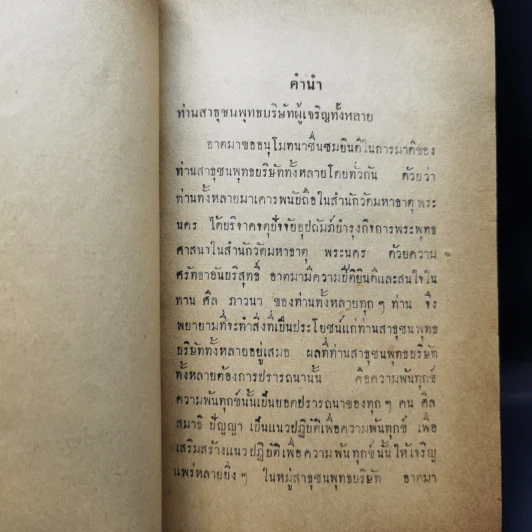 คำนำ
ท่านสาธุชนพุทธบริษัทผู้เจริญทั้งหลาย
อาตมาขออนุโมทนาชื่นชมยินดีในการมาดีของ
ท่านสาธุชนพุทธบริษัททั้งหลายโดยทั่วกัน ด้วยว่า
ท่านทั้งหลายมาเคารพนับถือในสำนักวัดมหาธาตุ พระ
นคร ได้บริจาคจตุปัจจัยอุปถัมภ์บำรุงกิจการพระพุทธ
ศาสนาในสำนักวัดมหาธาตุ พระนคร ด้วยความ
ศรัทธาอันบริสุทธิ์ อาตมามีความปีติยินดีและสนใจใน
ทาน ศีล ภาวนา ของท่านทั้งหลายทุก ๆ ท่าน จึง
พยายามที่จะทำสิ่งที่เป็นประโยชน์แก่ท่านสาธุชนพุทธ
บริษัททั้งหลายอยู่เสมอ ผลที่ท่านสาธุชนพุทธบริษัท
ทั้งหลายต้องการปรารถนานั้น คือความพ้นทุกข์
ความพ้นทุกข์นั้นเป็นยอดปรารถนาของทุก ๆ คน ศีล
สมาธิ ปัญญา เป็นแนวปฏิบัติเพื่อความพ้นทุกข์ เพื่อ
เสริมสร้างแนวปฏิบัติเพื่อความพ้นทุกข์นั้นให้เจริญ
แพร่หลายยิ่ง ๆ ในหมู่สาธุชนพุทธบริษัท อาตมา